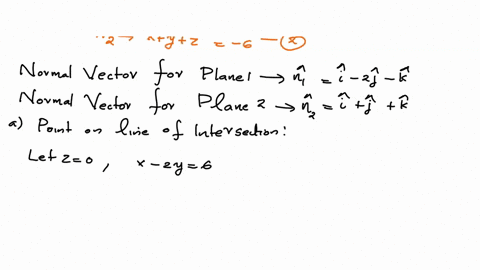 2 → x+y+z = -6 — (2)
Normal Vector for Plane 1 → n̂₁ = î - 2ĵ - k̂
Normal Vector for Plane 2 → n̂₂ = î + ĵ + k̂
a) Point on line of Intersection:
Let z=0, x-2y=6